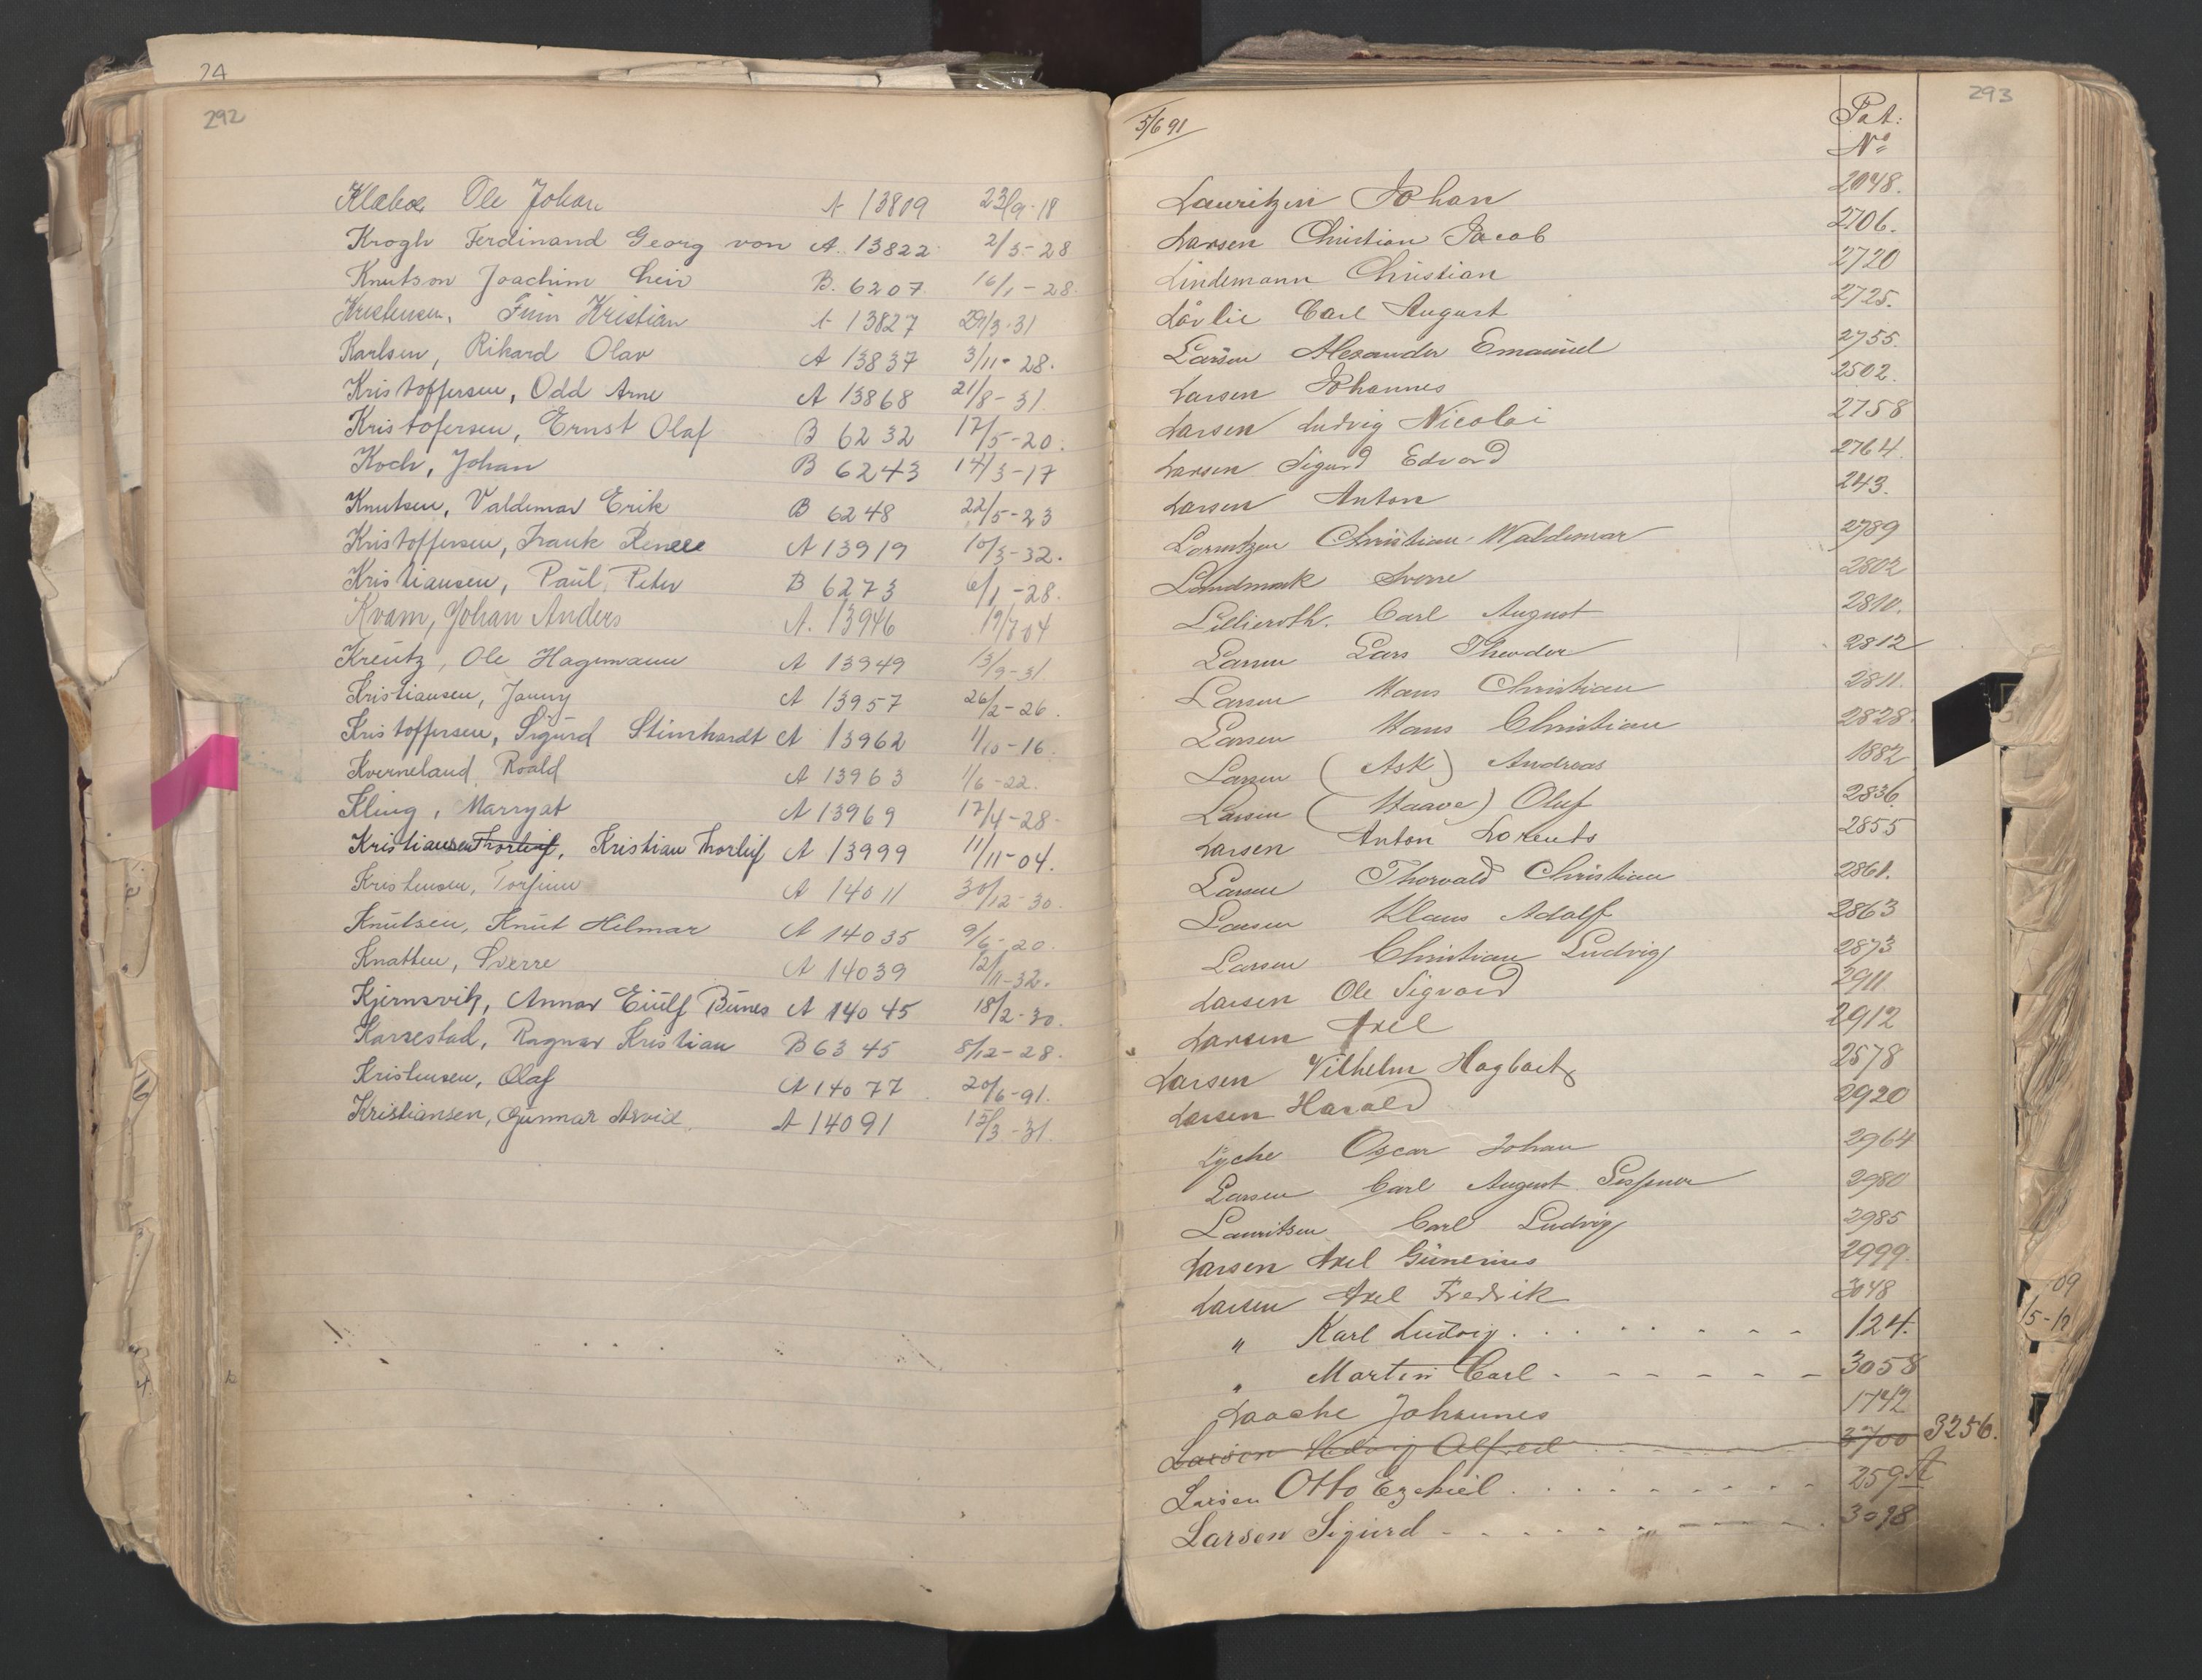 24
292
Klæboe Ole Johan A 13809 23/9-18
Krogh Ferdinand Georg von A. 13822 2/3-28
Knutson Joachim Leir B. 6207 16/1-28.
Kristensen, Finn Kristian A 13827 29/3-31
Karlsen, Rikard Olav A 13837 3/11-28.
Kristoffersen, Odd Arne A 13868 21/8-31
Kristofersen, Ernst Olaf B 6232 17/5-20.
Koch, Johan B 6243 14/3-17
Knutsen, Valdemar Erik B 6248 22/5-23
Kristoffersen, Frank Renee A 13919 10/3-32.
Kristiansen, Paul Peter B 6273 6/1-28.
Kvam, Johan Anders A. 13946 19/7 04
Kreutz, Ole Hagemann A 13949 13/9-31
Kristiansen, Janny A 13957 26/2-26.
Kristoffersen, Sigurd Steinhardt A 13962 1/10-16.
Kverneland, Roald A 13963 1/6-22.
Kling, Marryat A 13969 17/4-28-
Kristiansen Thorleif, Kristian Thorleif A 13999 11/11-04.
Kristensen, Torfinn A 14011 30/12-30.
Knutsen, Knut Hilmar A 14035 9/6-20.
Knatten, Sverre A 14039 12/11-32.
Kjernsvik, Annar Eiulf Bunes A 14045 18/2-30.
Karsestad, Ragnar Kristian B 6345 8/12-28.
Kristensen, Olaf A 14077 20/6-91.
Kristiansen, Gunnar Arvid A 14091 15/3-31.
5/6 91
Pat: No
293
Lauritzen Johan 2048.
Larsen Christian Jacob 2706.
Lindemann Christian 2720
Lövlie Carl August 2725.
Larsen Alexander Emanuel 2755.
Larsen Johannes 2502.
Larsen Ludvig Nicolai 2758
Larsen Sigurd Edvard 2764.
Larsen Anton 243.
Lorentzen Christian Waldemar 2789
Landmark Sverre 2802
Lillieroth. Carl August 2810.
Larsen Lars Theodor 2812
Larsen Hans Christian 2811.
Larsen Hans Christian 2828.
Larsen (Ask) Andreas 1882
Larsen (Haave) Oluf 2836.
Larsen Anton Lorents 2855
Larsen Thorvald Christian 2861.
Larsen Klaus Adolf 2863
Larsen Christian Ludvig 2873
Larsen Ole Sigvard 2911
Larsen Axel 2912
Larsen Vilhelm Hagbart 2578
Larsen Harald 2920
Lyche Oscar Johan 2964
Larsen Carl August 2980
Lauritsen Carl Ludvig 2985
Larsen Axel Gunerius 2999.
Larsen Axel Fredrik 3048
" Karl Ludvig 124.
" Martin Carl 3058
Laache Johannes 1742
Larsen Ludvig Alfred 3700 3256.
Larsen Otto Ezekiel 259 A
Larsen Sigurd " 3098
09
15-12